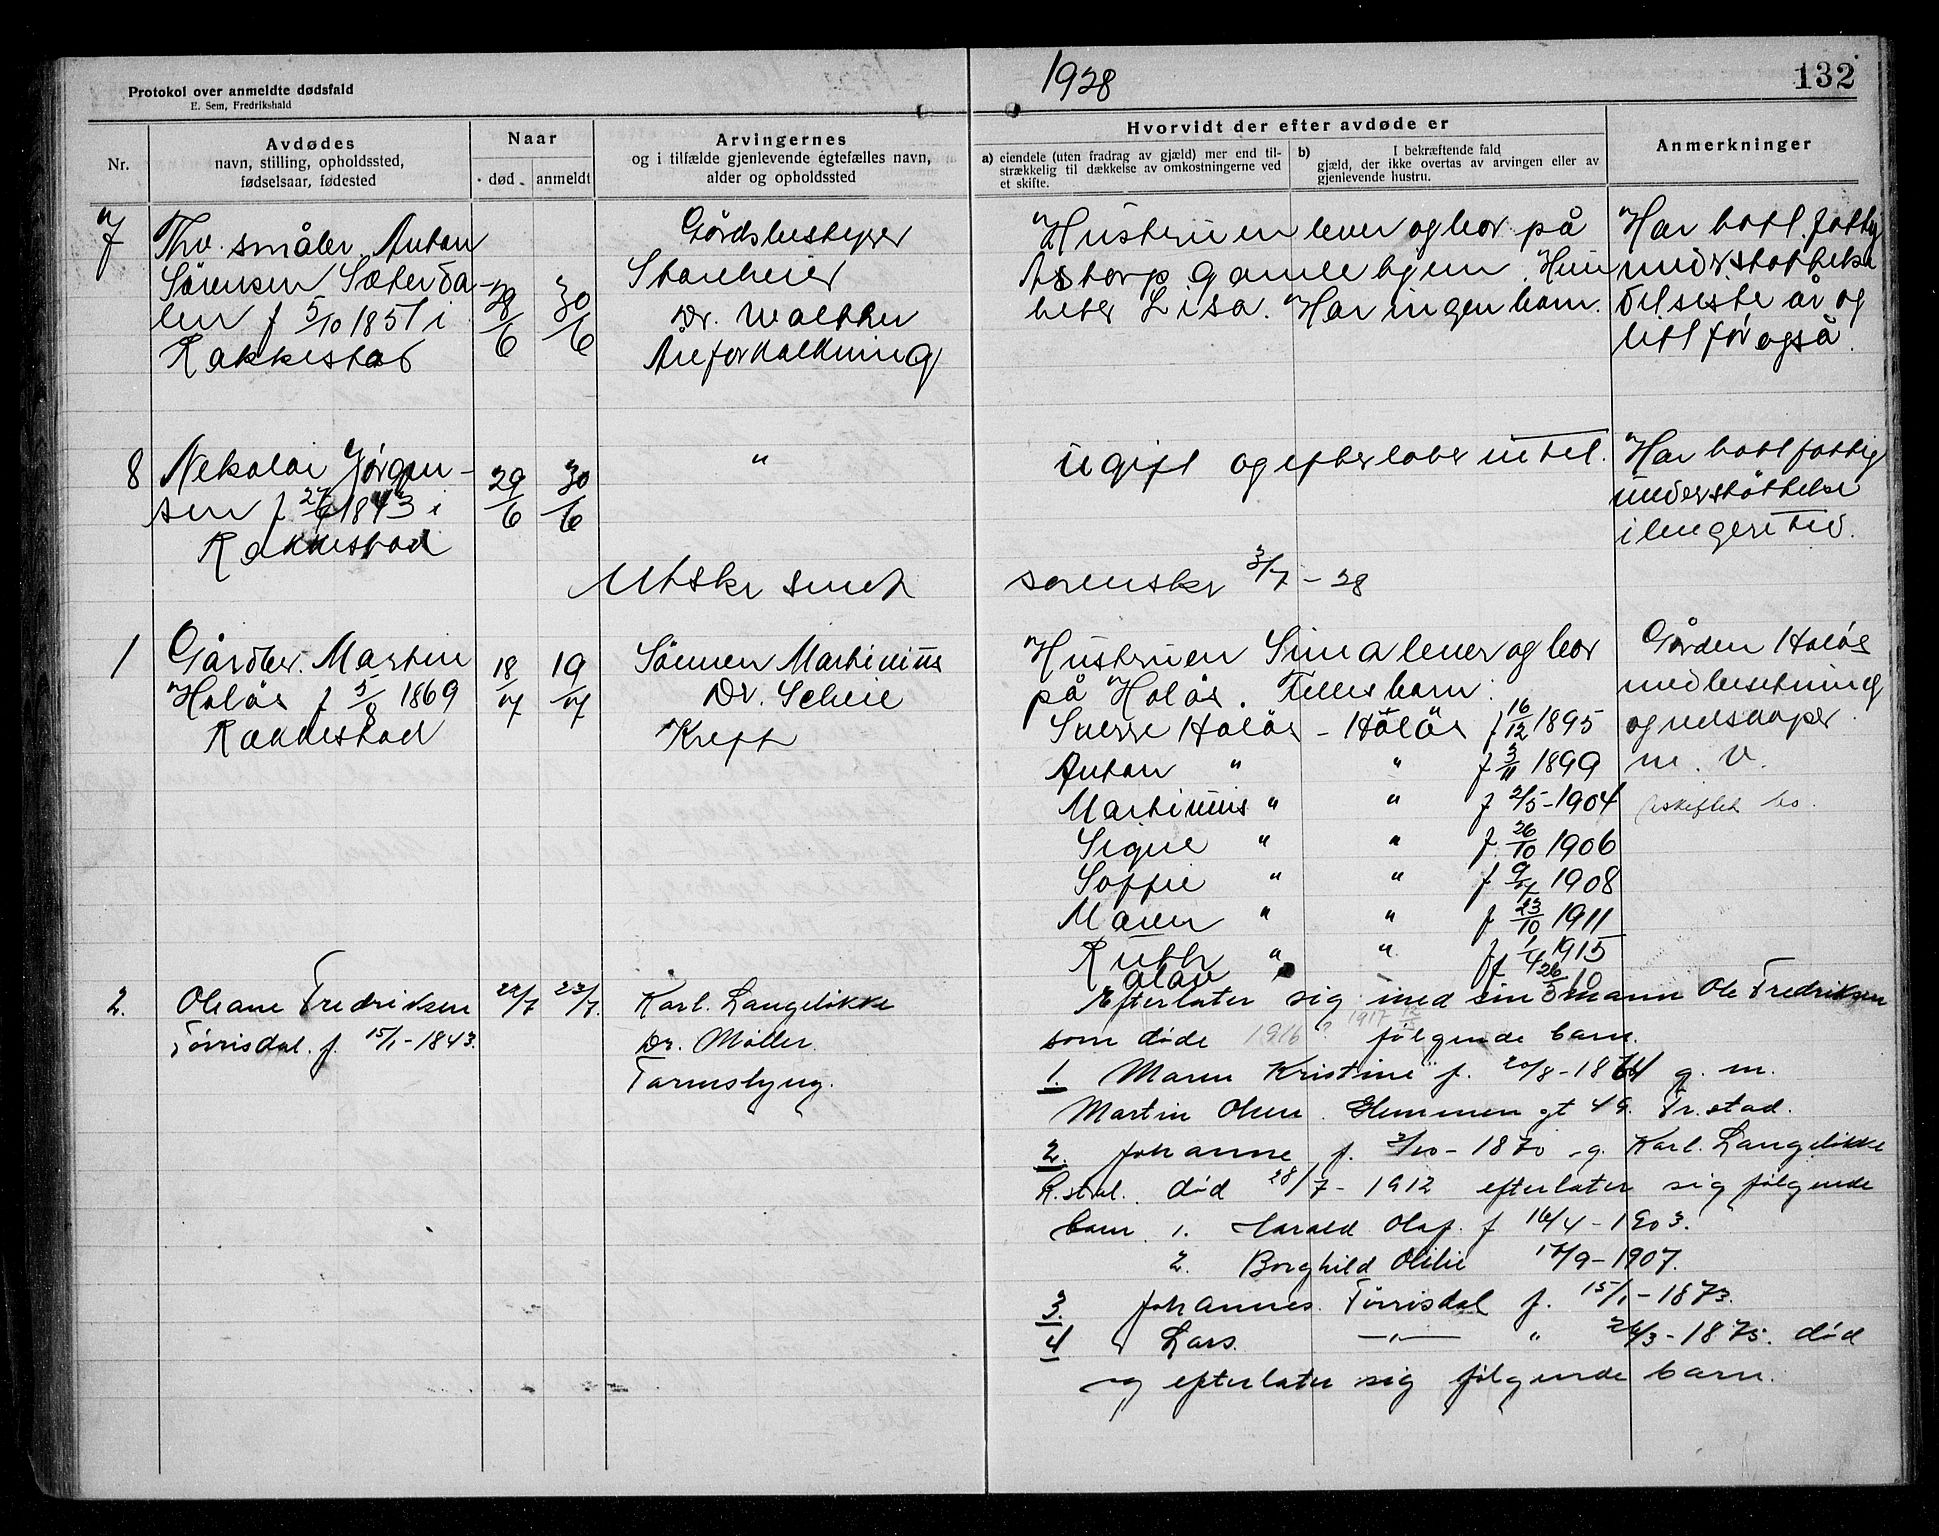 Protokol over anmeldte dødsfald
E. Sem, Fredrikshald
1928
132
Nr.
Avdødes
navn, stilling, opholdssted,
fødselsaar, fødested
Naar
død
anmeldt
Arvingernes
og i tilfælde gjenlevende egtefælles navn,
alder og opholdssted
Hvorvidt der efter avdøde er
a) eiendele (uten fradrag av gjæld) mer end til-
strækkelig til dækkelse av omkostningerne ved
et skifte.
b) I bekræftende fald
gjæld, der ikke overtas av arvingen eller av
gjenlevende hustru.
Anmerkninger
7
Fhv. småbr. Anton
Sørensen Sæterda-
len f 5/10 1851 i
Rakkestad
28/6
30/6
Gårdsbestyrer
Stenheier
Dr. Walther
Areforkalkning
Hustruen lever og bor på
Astorp gamlehjem. Hun
heter Lisa. Har ingen barn.
Har hatt fattig
understøttelse
det siste år og
litt før også.
8
Nekolai Jørgen-
sen f 27/6 1843 i
Rakkestad
29/6
30/6
"
Ugift og efterlater intet.
Har hatt fattig
understøttelse
i lengere tid.
Utskr sendt sorenskr 3/7 - 28
1
Gårdbr. Martin
Holøs f 5/8 1869
Rakkestad
18/7
19/7
Sønnen Martinius
Dr. Scheie
Kreft
Hustruen Sina lever og bor
på Holøs. Felles barn:
Sverre Holøs - Holøs f 16/12 1895
Anton " " f 3/11 1899
Martinius " " f 2/5 - 1904
Signe " " f. 26/10 1906
Soffie " " f 9/7 1908
Maren " " f 23/10 1911
Ruth " " f 1/4 1915
Olav f 26/3 10
Gården Holøs
med besetning
og redskaper
m. v.
Uskiftet bo.
2.
Oleane Fredriksen
Tørrisdal. f. 15/1 - 1843.
22/7
23/7.
Karl. Langeløkke
Dr. Møller.
Tarmslyng.
Efterlater sig med sin mann Ole Fredriksen
som døde 1916? 1917 12/ følgende barn.
1. Maren Kristine f. 20/8 - 1864 g. m.
Martin Olsen. Glemmen gt 49. Fr.stad.
2. Johanne f. 2/10 - 1870 g. Karl. Langeløkke
R.stad. død 28/7 - 1912 efterlater sig følgende
barn. 1. Harald Olaf. f 16/4 - 1903.
2. Borghild Otilie 17/9 - 1907.
3. Johannes. Tørrisdal f. 15/1 - 1873.
4 Lars. —"— " 26/3 - 1875. død
og efterlater sig følgende barn.